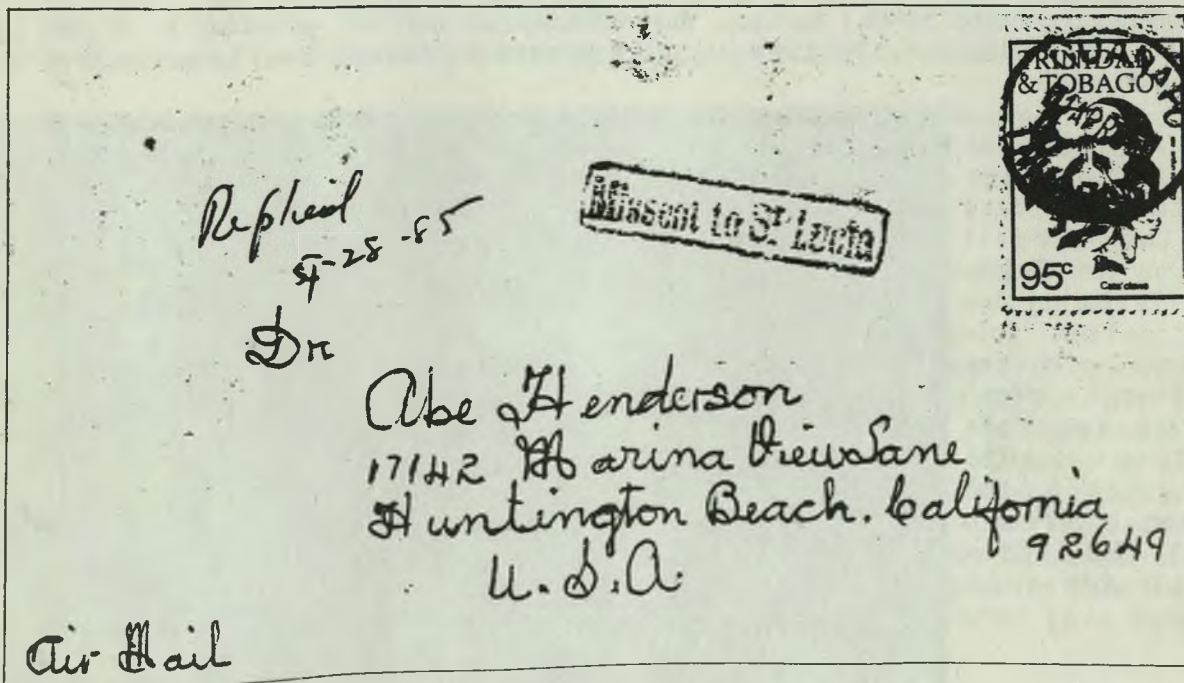 TRINIDAD
& TOBAGO
95c
Missent to St. Lucia
Replied
-28-85
Dr
Abe Henderson
17142 Marina View Lane
Huntington Beach. California
92649
U.S.A.
Air Mail